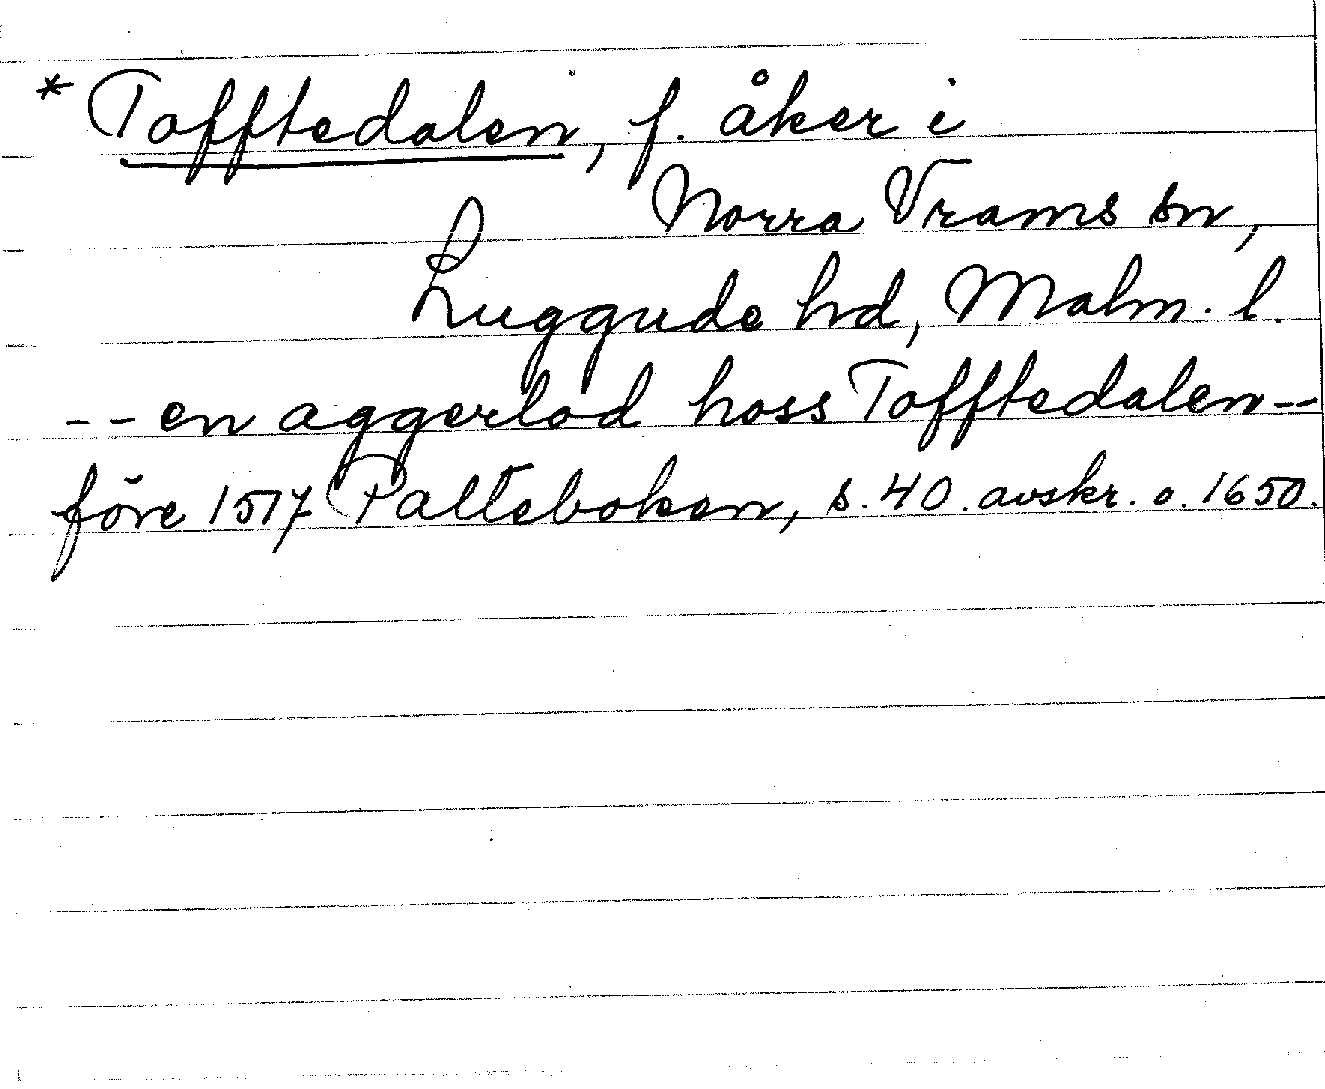 * Tofftedalen, f. åker i
Norra Vrams sn,
Luggude hd, Malm. l.
-- en aggerlod hoss Tofftedalen --
före 1517 Palteboken, s. 40. avskr. o. 1650.